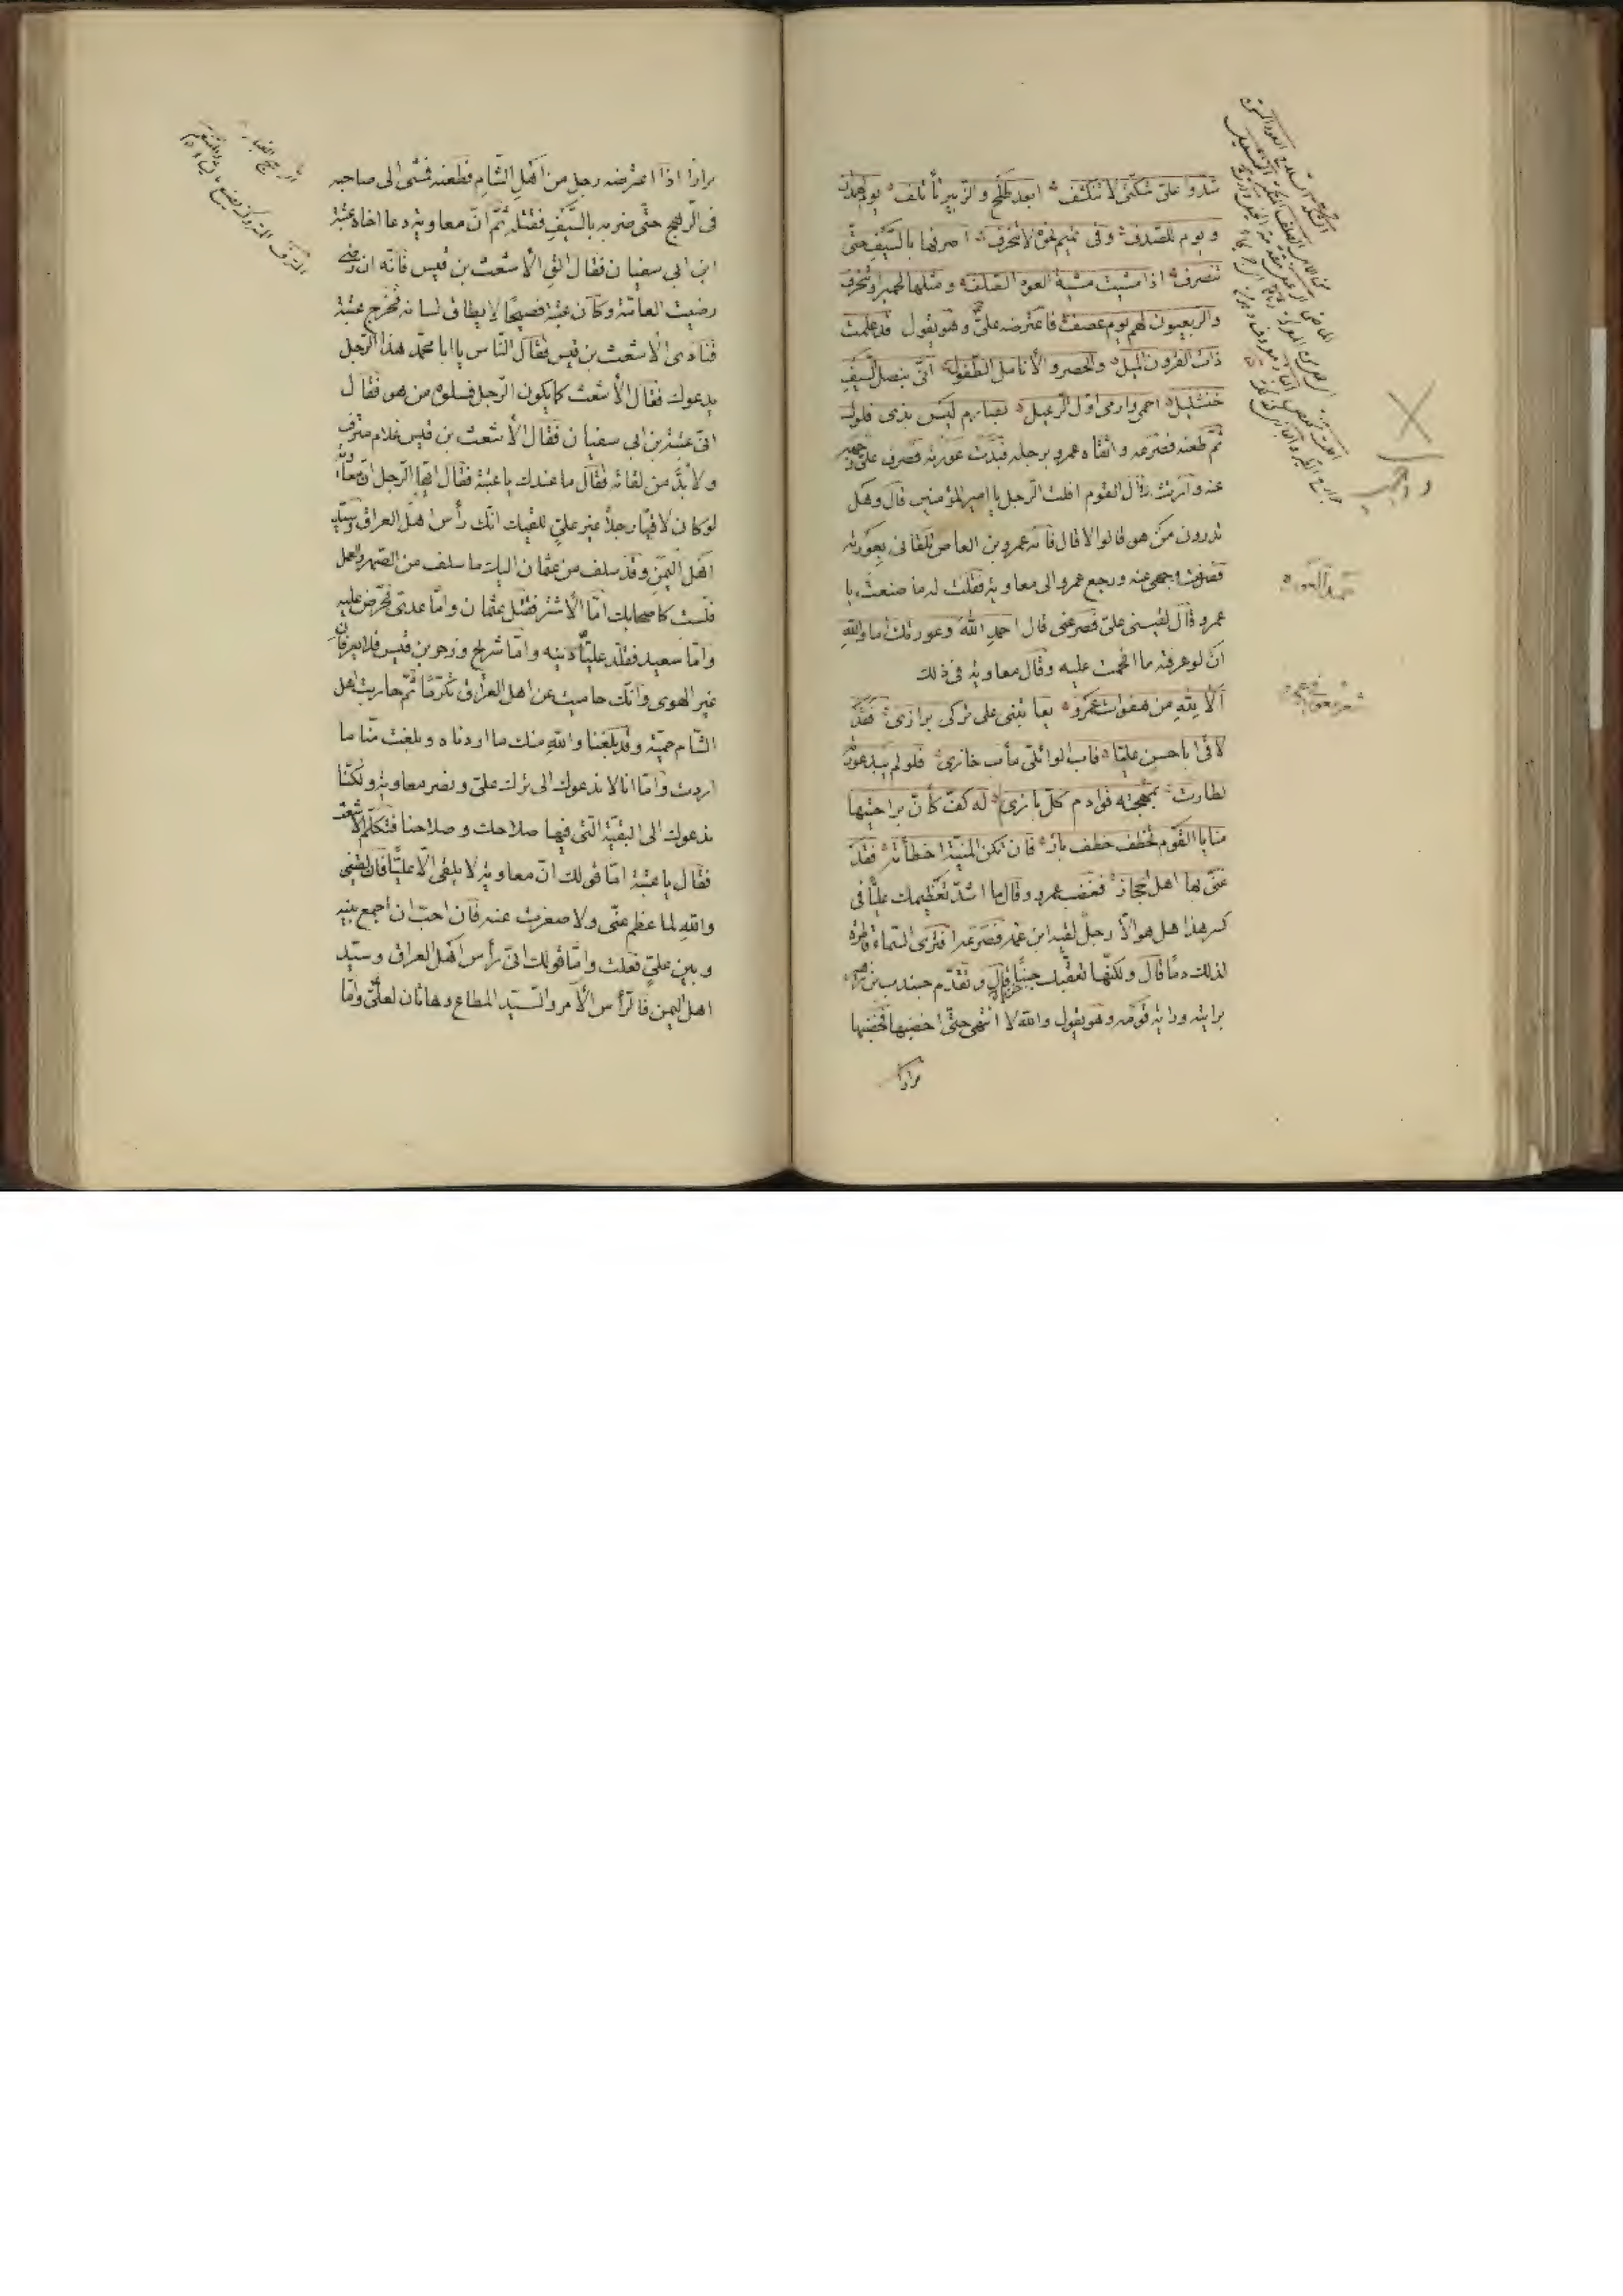 شدوا علىّ شكّتى لا تنكشف ابعد طلحٍ والزبير تأتلف يوم لهمدان
ويوم للصدف وفى تميم نخوة لا تنحرف اضربها بالسيف حتّى
تنصرف اذا مشيت مشية العود الصلف ومثلها لحمير او تنحرف
والربعيون لهم يوم عصف فاعترضه علىّ وهو يقول قد علمت
ذات القرون الميل والخصر والأنامل الطفول انّى بنصل السيف
خنشليل احمى وارمى اوّل الرعيل بصارم ليس بذى فلول
ثمّ طعنه فصرعه واتّقاه عمرو برجله فبدت عورته فصرف علىّ وجهه
عنه وارتث فقال القوم افلت الرجل يا امير المؤمنين قال وهل
تدرون من هو قالوا لا قال فانّه عمرو بن العاص تلقانى بعورته
فصرفت وجهى عنه ورجع عمرو الى معاوية فقال له ما صنعت يا
عمرو قال لقينى علىّ فصرعنى قال احمد الله وعورتك اما والله
ان لو عرفته ما اقحمت عليه وقال معاوية فى ذلك
ألا لله من هفوات عمرو يعاتبنى على تركى برازى فقد
لاقى ابا حسن عليّا فاب الوائلىّ مأب خازى فلو لم يبد عورته
لطارت بمهجته قوادم كلّ بازى له كفّ كأنّ براحتيها
منايا القوم تخطف خطف باز فان تكن المنيّة اخطأته فقد
غنّى بها اهل الحجاز فغضب عمرو وقال ما اشدّ تعظيمك عليّا فى
كسر هذا هل هو الّا رجل لقيه ابن عمّه فصرعه افترى السماء قاطرة
لذلك دمًا قال ولكنّها تعقبك جبنًا قال وتقدّم جندب بن زهير
برايته وراية قومه وهو يقول والله لا انتهى حتّى اخضبها فخضبها
مرارا
مرارًا اذا اعترضه رجل من اهل الشام فطعنه فمشى الى صاحبه
فى الرمح حتّى ضربه بالسيف فقتله ثمّ انّ معاوية دعا اخاه عتبة
ابن ابى سفيان فقال الق الأشعث بن قيس فانّه ان رضى
رضيت العامّة وكان عتبة فصيحًا لا يطاق لسانه فخرج عتبة
فنادى الأشعث بن قيس فقال الناس يا ابا محمّد هذا الرجل
يدعوك فقال الأشعث كما يكون الرجل فسلوه من هو فقال
انّى عتبة بن ابى سفيان فقال الأشعث بن قيس غلام مترف
ولا بدّ من لقائه فقال ما عندك يا عتبة فقال ايّها الرجل انّ معاوية
لو كان لاقيا رجلًا غير علىّ للقيك انّك رأس اهل العراق وسيّد
اهل اليمن وقد سلف من عثمان اليك ما سلف من الصهر والعمل
فلست كاصحابك امّا الأشتر فقتل عثمان وامّا عدىّ فحرّض عليه
وامّا سعيد فقلّد عليّا دينه وامّا شريح وزحر بن قيس فلا يعرفان
غير الهوى وانّك حاميت عن اهل العراق تكرّمًا ثمّ حاربت اهل
الشام حميّة وقد بلغنا والله منك ما اردناه وبلغت منّا ما
اردت وامّا انا لا ندعوك الى ترك علىّ ونصر معاوية ولكنّا
ندعوك الى البقيّة الّتى فيها صلاحك وصلاحنا فتكلّم الأشعث
فقال يا عتبة امّا قولك انّ معاوية لا يلقى الّا عليّا فان لقينى
والله لما عظم عنّى ولا صغرت عنه فان احبّ ان اجمع بينه
وبين علىّ فعلت وامّا قولك انّى رأس اهل العراق وسيّد
اهل اليمن فالرأس الأمر والسيّد المطاع وهاتان لعلىّ وامّا